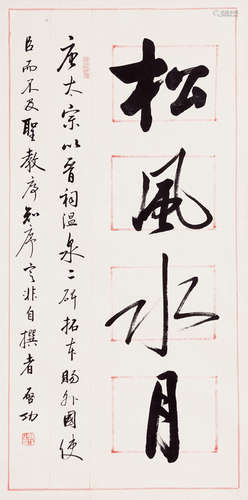 松風水月
唐太宗以晉祠溫泉二碑拓本賜外國使
臣而不及聖教序知序定非自撰者 啓功